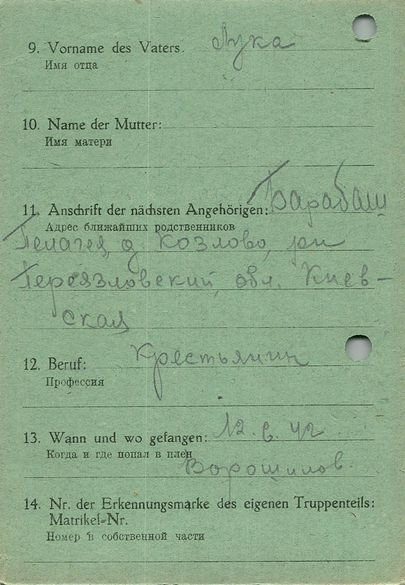 9. Vorname des Vaters: Лука
Имя отца
10. Name der Mutter:
Имя матери
11. Anschrift der nächsten Angehörigen: Барабаш
Адрес ближайших родственников
Пелагея, д. Козлово, р-н
Переязловский, обл. Киев-
ская
12. Beruf: Крестьянин
Профессия
13. Wann und wo gefangen: 12.6.42
Когда и где попал в плен
Ворошилов
14. Nr. der Erkennungsmarke des eigenen Truppenteils:
Matrikel-Nr.
Номер в собственной части